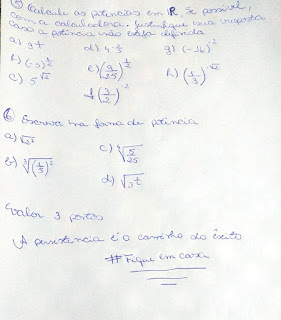 ⑤ Calcule as potências em R, se possível,
com a calculadora. Justifique sua resposta
caso a potência não esteja definida
b) (-3)^½
c) 5^√2
e) (9/25)^½
f) (3/2)^-2
g) (-16)^-2
h) (1/3)^-√2
⑥ Escreva na forma de potência
a)
b)
c)
d)
Valor 3 pontos
A persistência é o caminho do êxito
#Fique em casa